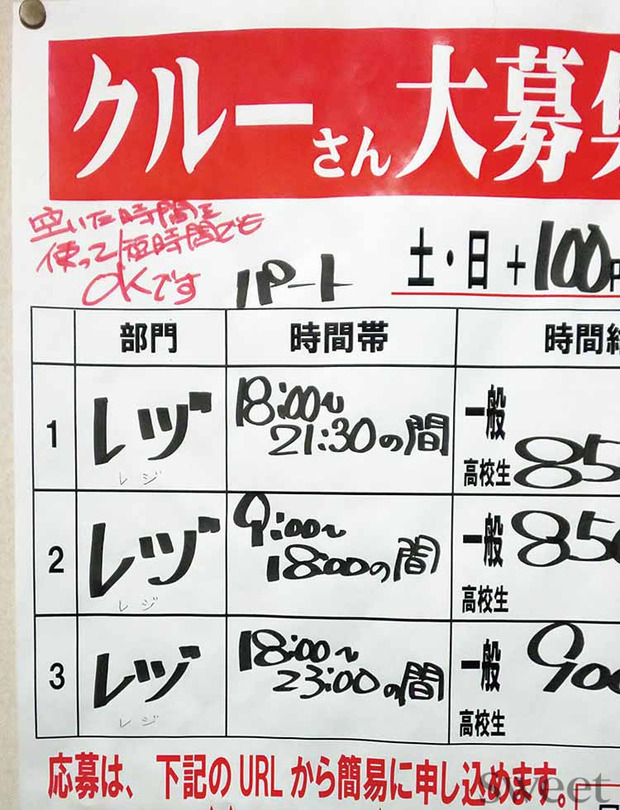 クルーさん大募集
空いた時間を
使って短時間でも
OKです
パート
土・日+100円
部門 時間帯 時間給
1 レヅ 18:00~ 一般
21:30の間 850
レジ 高校生
2 レヅ 9:00~ 一般 850
18:00の間
レジ 高校生
3 レヅ 18:00~ 一般 900
23:00の間
レジ 高校生
応募は、下記のURLから簡易に申し込めます。
sweet